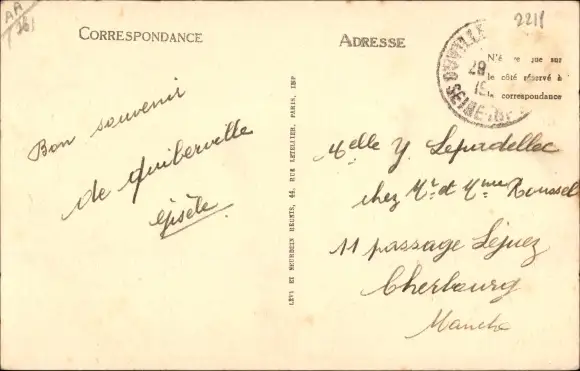 AA
2211
CORRESPONDANCE
ADRESSE
N'é que sur
le côté réservé à
la correspondance
28
SEINE
Bon souvenir
de Quiberville
Gisèle
Melle Y. Lepardellec
chez Mr et Mme Roussel
11 passage Lejuez
Cherbourg
Manche
LÉVY ET NEURDEIN RÉUNIS, 44, RUE LETELLIER, PARIS, IMP